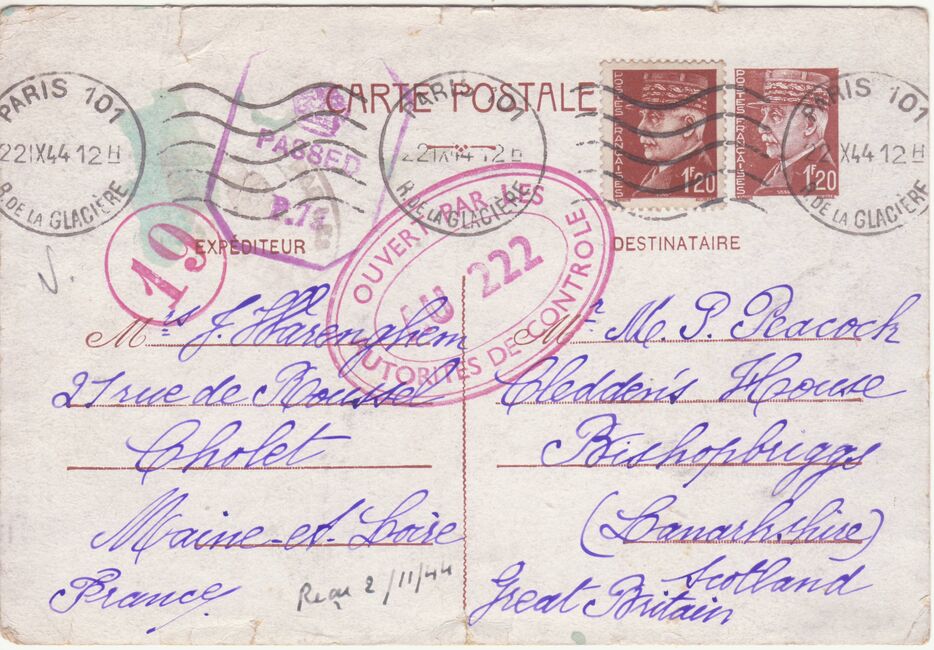 CARTE POSTALE
PARIS 101
22 IX 44 12 H
R. DE LA GLACIÈRE
PARIS 101
22 IX 44 12 H
R. DE LA GLACIÈRE
PARIS 101
2 X44 12 H
R. DE LA GLACIÈRE
PASSED
P.
POSTES FRANÇAISES
1F20
POSTES FRANÇAISES
1F20
19
OUVERT PAR LES
AU 222
AUTORITÉS DE CONTROLE
EXPÉDITEUR
Mrs J. Warenghem
21 rue de Roussel
Cholet
Maine-et-Loire
France
Reçu 2/11/44
DESTINATAIRE
Mr M. P. Peacock
Cleddens House
Bishopbriggs
(Lanarkshire)
Scotland
Great Britain